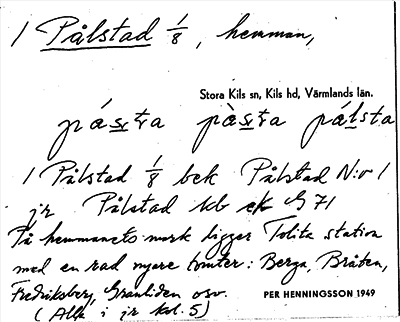 1 Pålstad 1/8, hemman,
Stora Kils sn, Kils hd, Värmlands län.
pásta pàsta pálsta
1 Pålstad 1/8 bek Pålstad N:o 1
jr Pålstad kb G 71
På hemmanets mark ligger Tolita station
med en rad nyare tomter: Berga, Bråten,
Fredriksberg, Granliden osv.
PER HENNINGSSON 1949
(Alla i jr kol. 5)